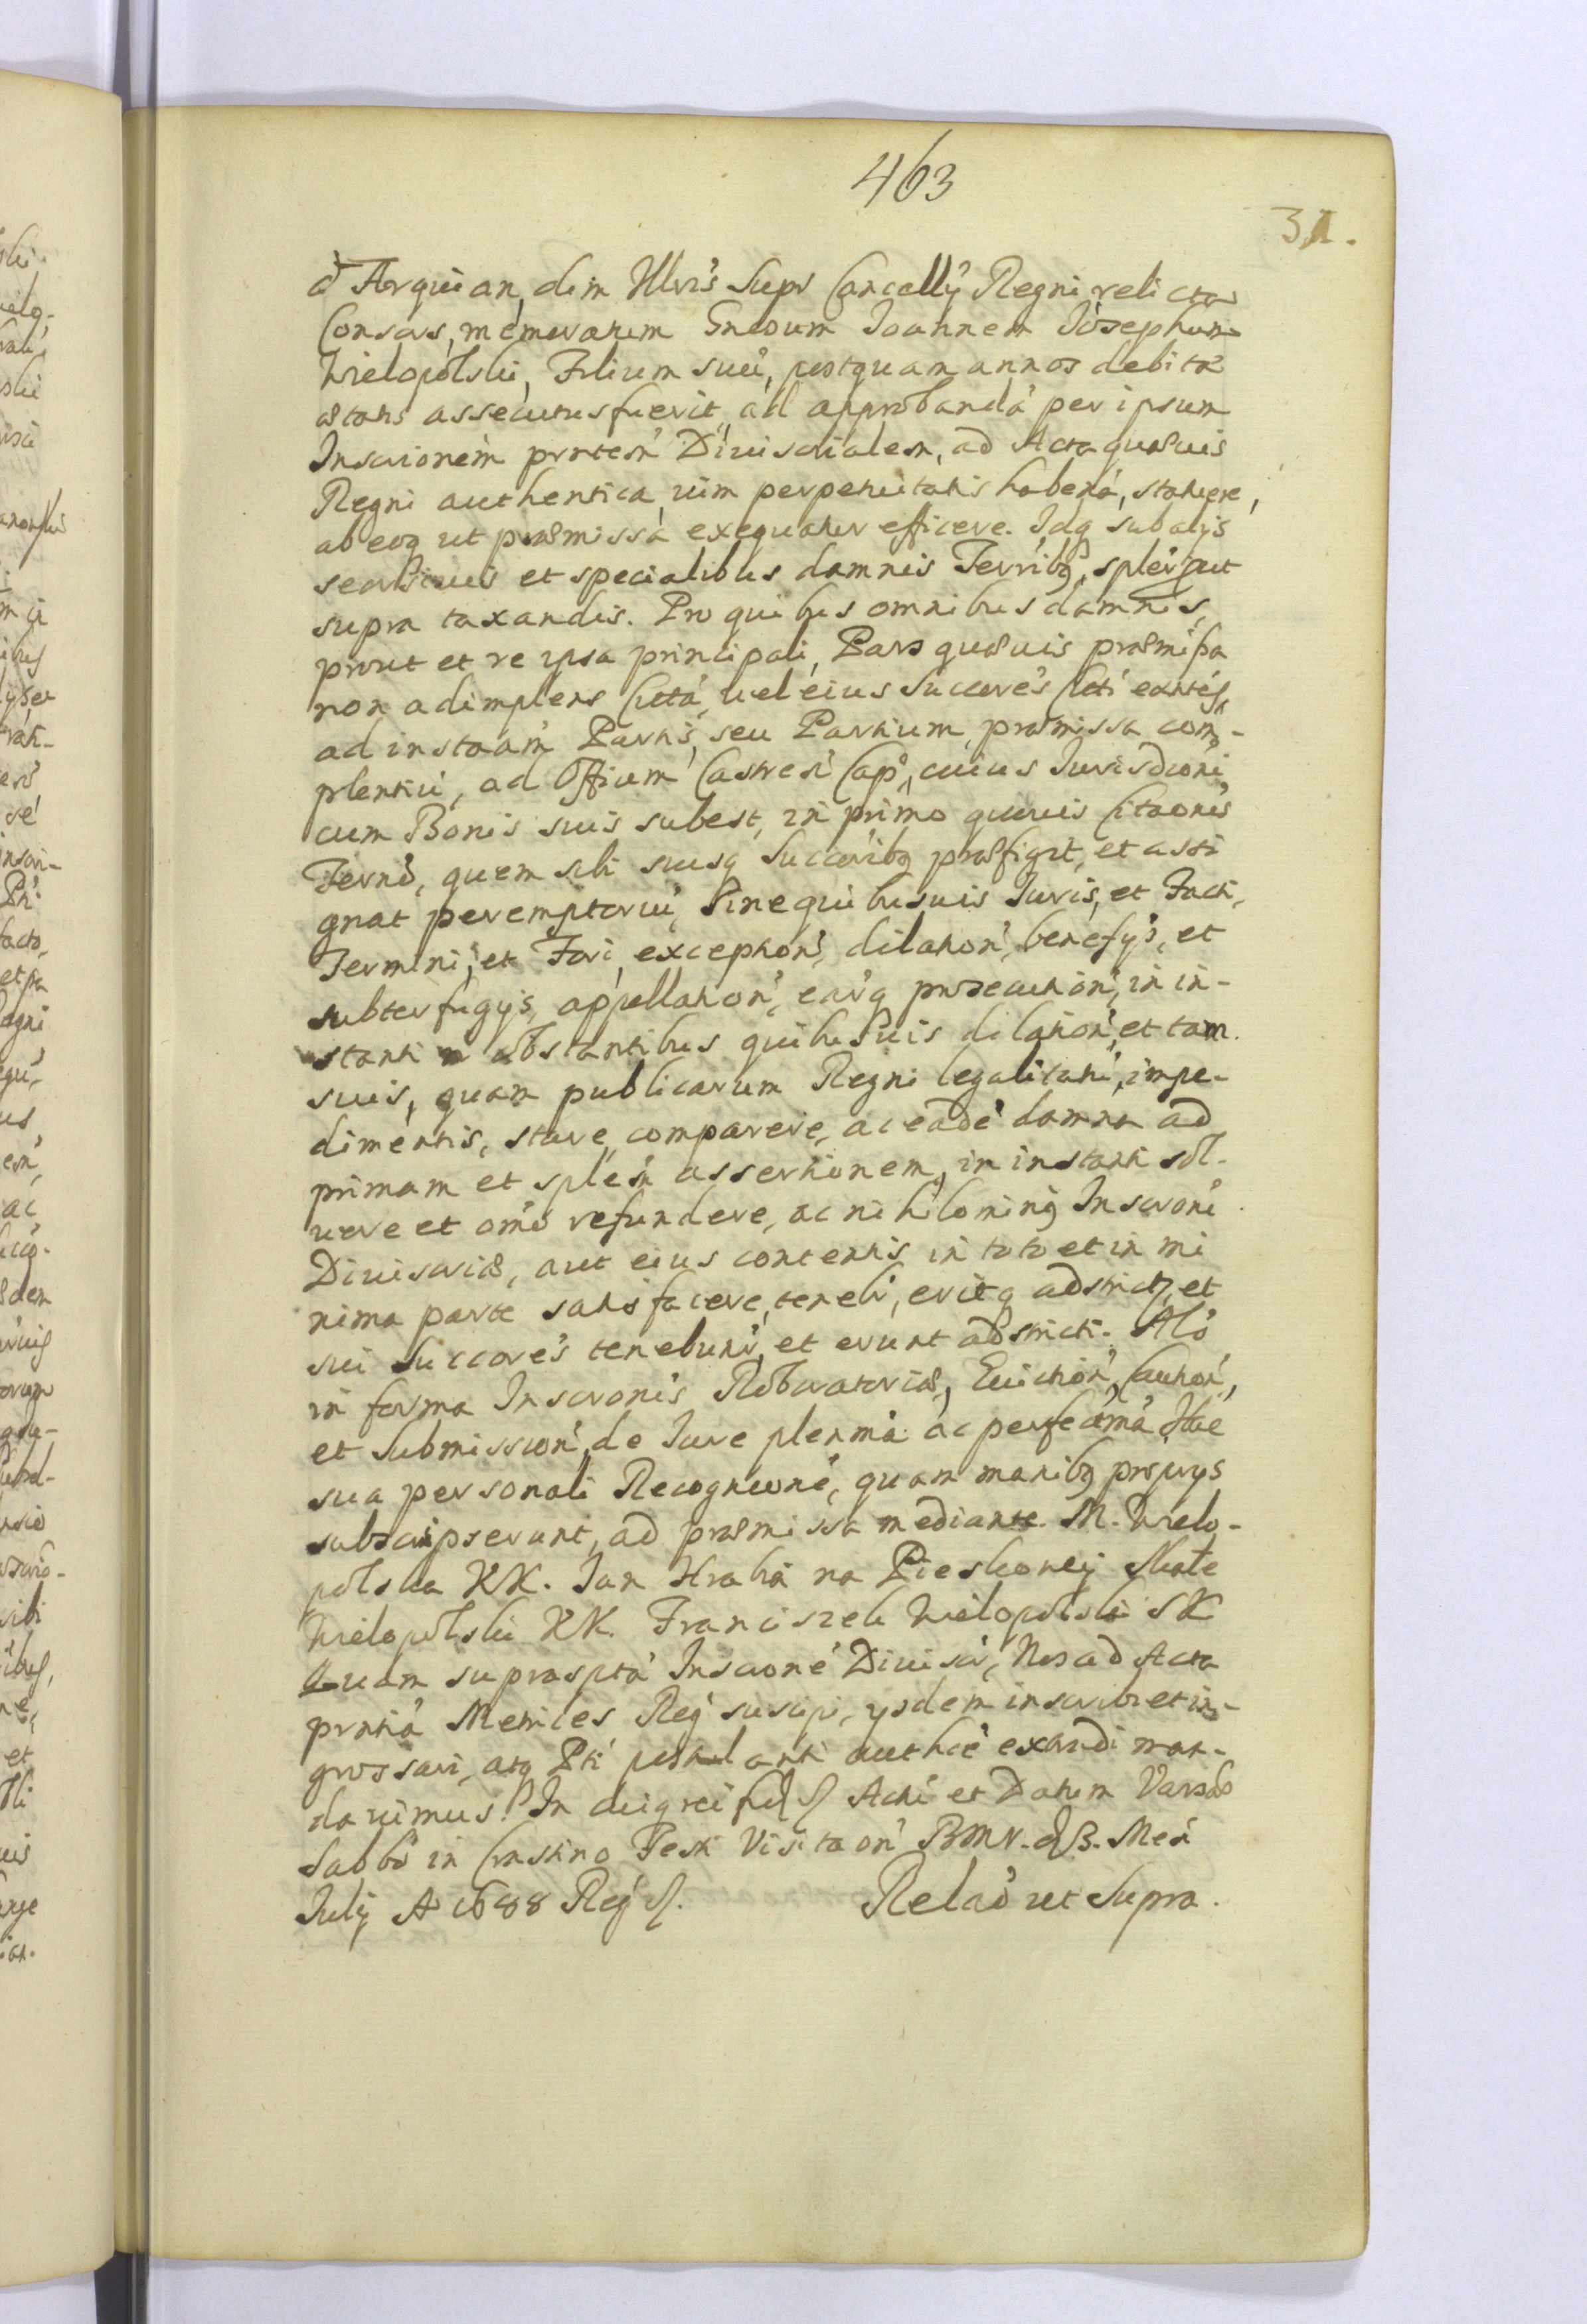 463
31.
d'Arquian, olim Illris Supr Cancelly Regni relicta
Consors, memoratum Gnosum Joannem Josephum
Wielopolski, Filium suu, postquam annos debitæ
ætatis assecutus fuerit, ad approbandá per ipsum
Inscrionem prntem Diuisorialem, ad Acta quæuis
Regni authentica, uim perpetuitatis habená, statuere,
ab eoq ut præmissa exequatur efficere. Idq sub alijs
seorsiuis et specialibus damnis Terribq, splér, aut
supra taxandis. Pro quibus omnibus damnis,
prout et re ipsa principali, Pars quæuis præmissa
non adimplens Citta, uel eius Successorés Citi extités,
ad instaam Partis, seu Partium, præmissa com-
plentiu, ad Offium Castren Cap, cuius Jurisdioni
cum Bonis suis subest, in primo quouis Citaonis
Terno, quem sibi suisq Succoribq præfigit, et assi
gnat peremptoriu, Sine quibusuis Juris, et Facti,
Termini, et Fori, exception, dilation, benefys, et
subterfugys, appellation, earq prosecution, in in-
stanti obstantibus quibusuis dilation, et tam
suis, quam publicarum Regni legalitati, impe-
dimentis, stare, comparere, ac eade damna ad
primam et splem assertionem, in instanti sol-
uere et omo refundere, ac nihilominq Inscroni
Diuisoriæ, aut eius contentis in toto et in mi
nima parte satisfacere, tenebr, eritq adstrictq, et
sui Succores tenebunr, et erunt adstricti. Alo
in forma Inscronis Roboratoriæ, Euiction, Caution,
et Submission, de Jure plenma ac perfecma, Hac
sua personali Recognione, quam manibq proprys
subscripserunt, ad præmissa mediante. M. Wielo-
polska KK. Jan Hrabia na Pieskowey Skale
Wielopolski KK. Franciszek Wielopolski SK
Quam suprascptá Inscrioné Diuisor, Nos ad Acta
prntia Metrices Reg suscipi, ysdem inscribi et in-
grossari, atq Pti postulanti authcè extradi man-
dauimus. In cuig rei fid Acti et Datum Varsao
Sabbo in Crastino Festi Visitaon BMV. d 3. Men
July A 1688 Reg
Relaò ut Supra.